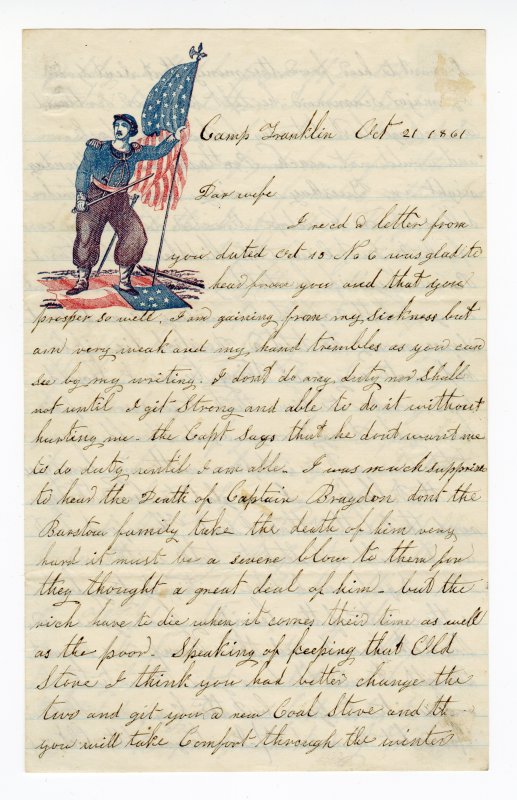 Camp Franklin Oct 21 1861
Dar wife
I recd a letter from
you dated Oct 13 No 6 was glad to
hear from you and that you
prosper so well. I am gaining from my sickness but
am very weak and my hand trembles as you can
see by my writing. I dont do any duty nor shall
not until I get Strong and able to do it without
hurting me. the Capt says that he dont want me
to do duty until I am able. I was much supprise
to hear the Death of Captain Bragdon dont the
Barstow family take the death of him very
hard it must be a severe blow to them for
they thought a great deal of him. but the
rich have to die when it comes their time as well
as the poor. Speaking of keeping that Old
Stove I think you had better change the
two and get you a new Coal Stove and
you will take Comfort through the winter